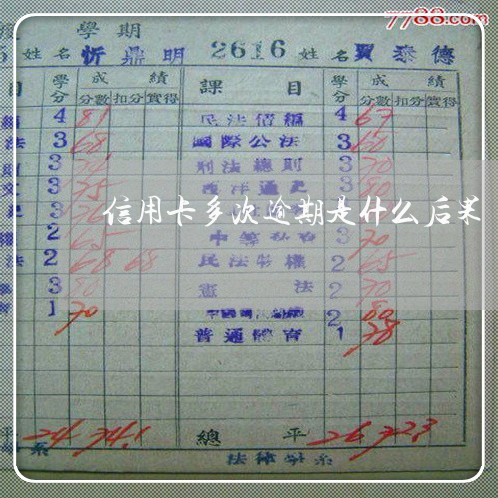 7788.com
學期
5 姓名 忻鼎明 2616 姓名 賈泰德
目 學分 成績 課目 學分 成績
分數 扣分 實得 分數 扣分 實得
4 81 民法債編 4 67
法 3 68 國際公法 3 60
3 刑法總則 3 70
文 3 75 西洋通史 3 80
信用卡多次逾期是什么后果
權 2 65 3 70
法 2 68 68 民法物權 2 65
3 80 憲法 2 70
育 1 70 2 80
普通體育 1 78
平 24 74.1 總平 26 72.3
系 法律學系